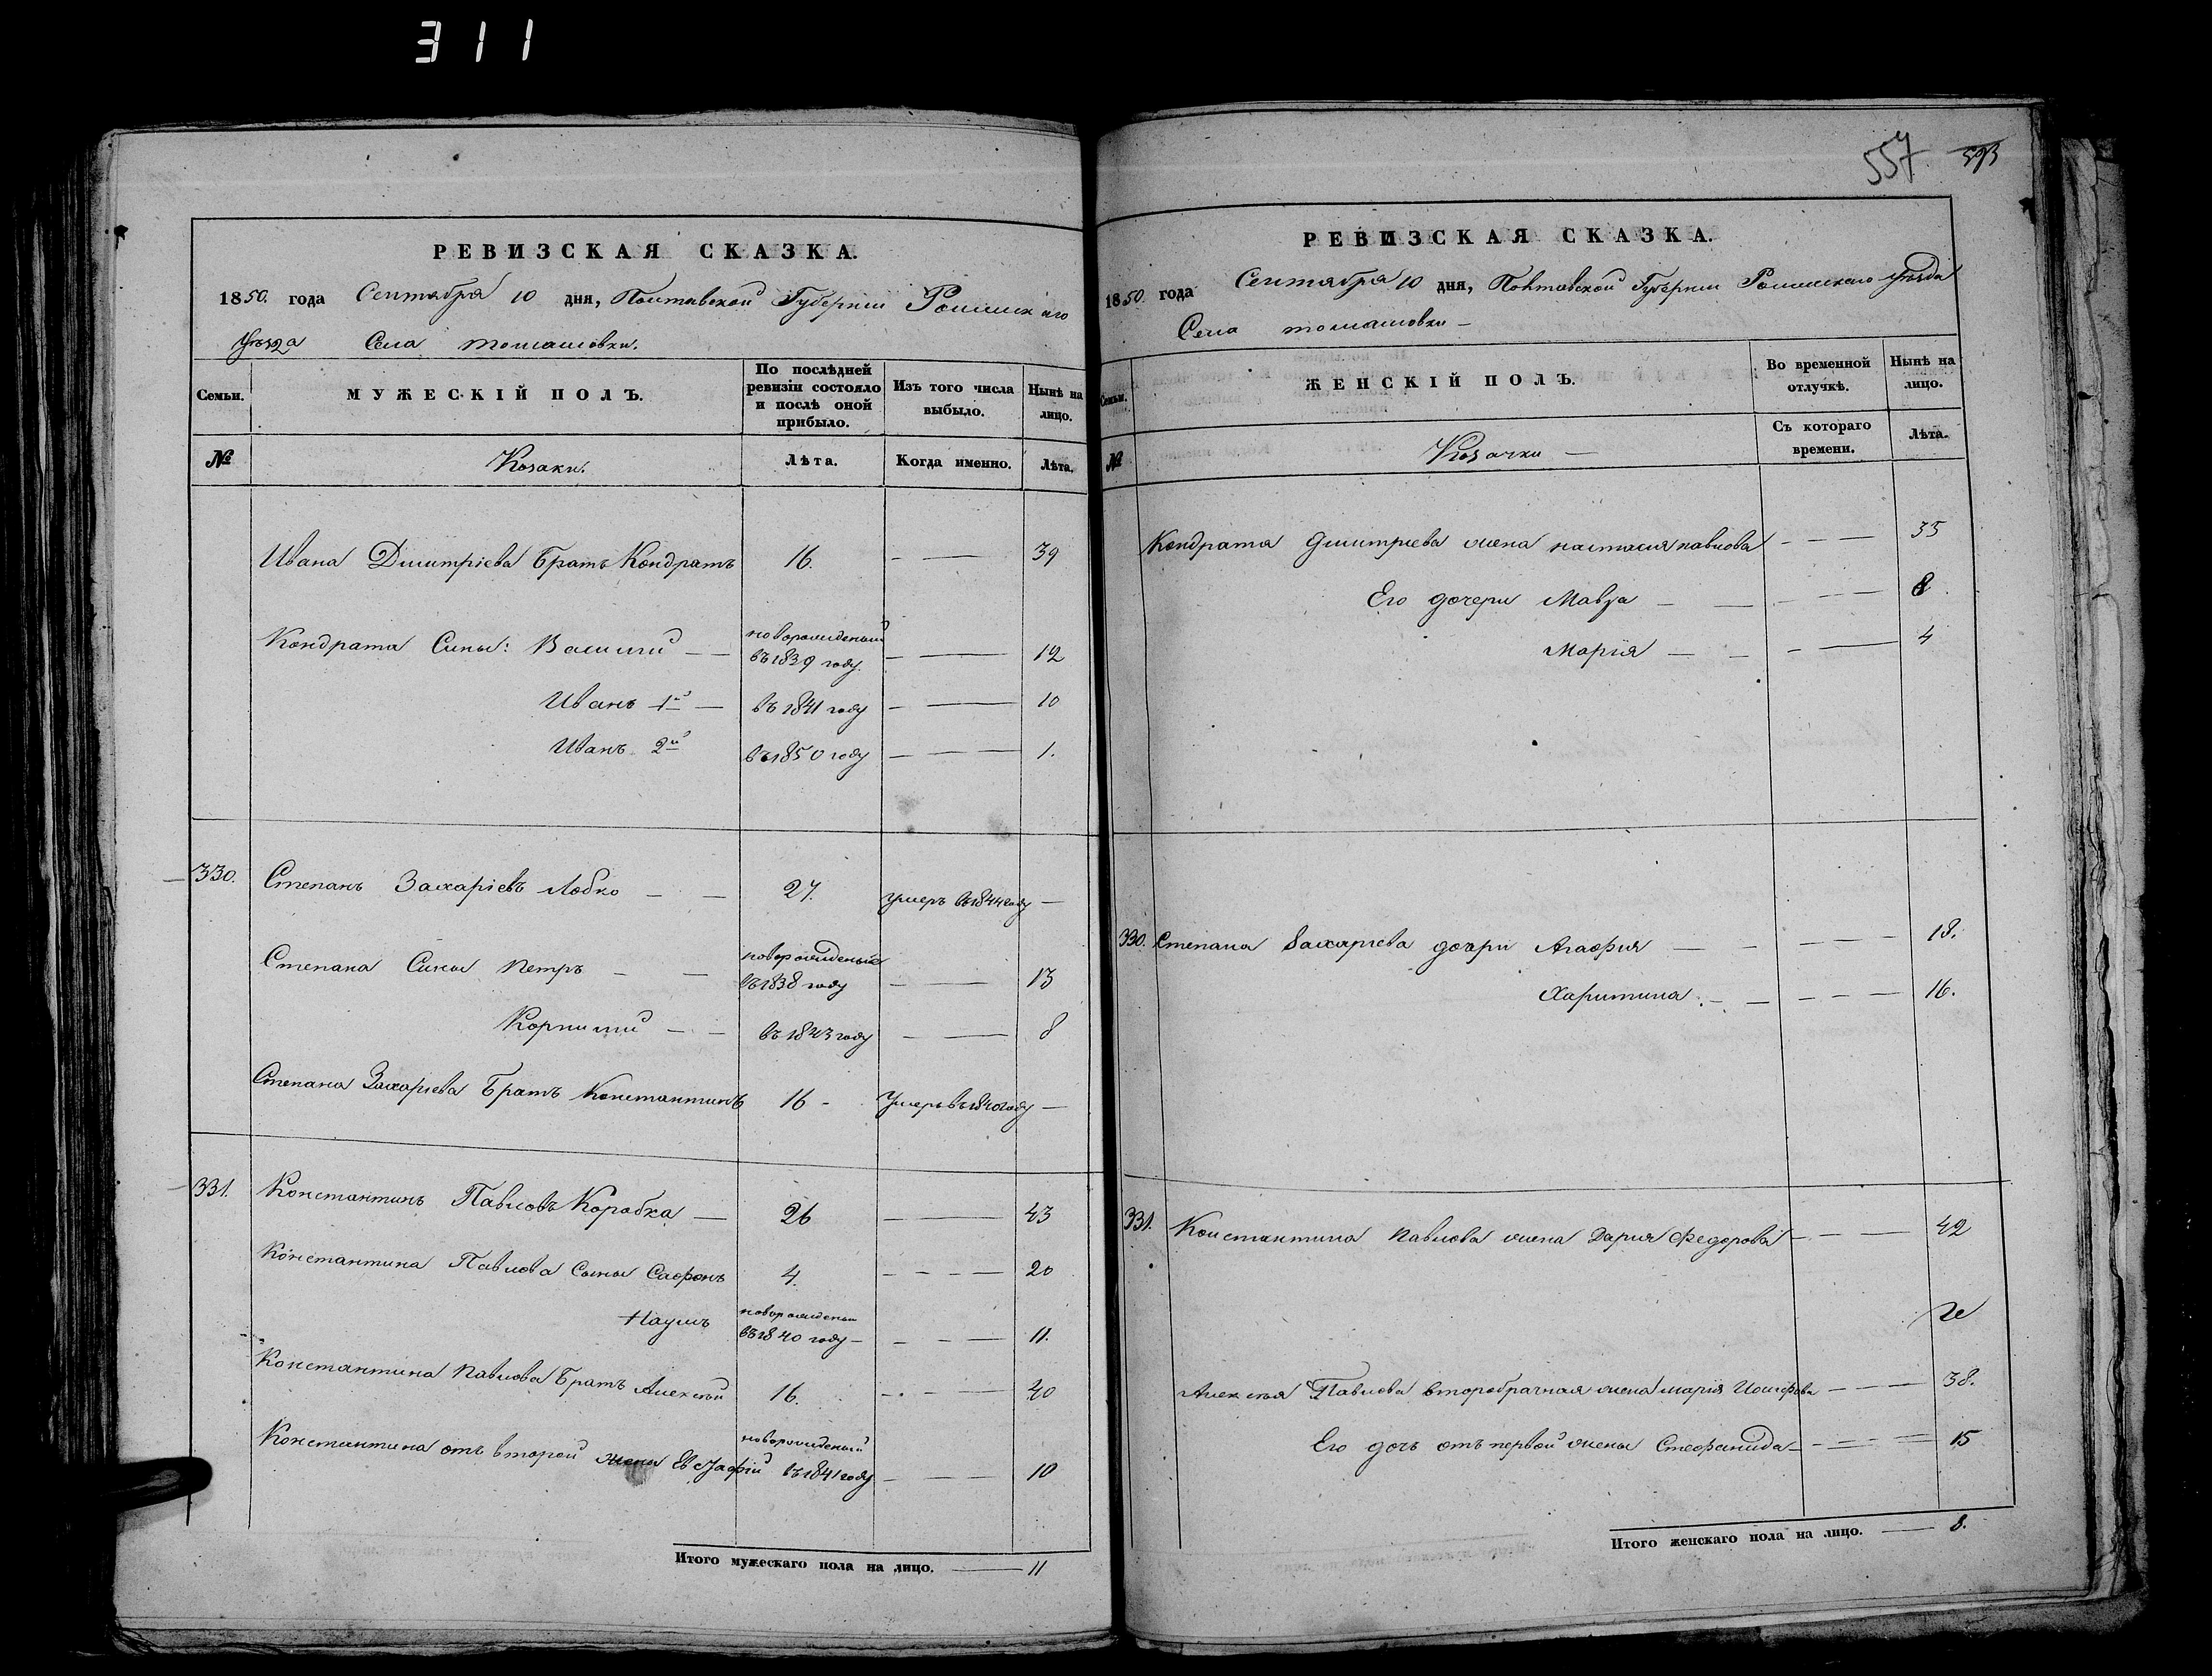 311
РЕВИЗСКАЯ СКАЗКА.
1850. года Сентября 10 дня, Полтавской Губернии Роменскаго
Уезда Села Томашовки.
Семьи.
МУЖЕСКІЙ ПОЛЪ.
По послѣдней ревизіи состояло и послѣ оной прибыло.
Изъ того числа выбыло.
Нынѣ на лицо.
№
Козаки.
Лѣта.
Когда именно.
Лѣта.
Ивана Дмитріева Братъ Кондратъ 16. — — 39
Кондрата Сины: Василій — — новорожденый въ 1839 году. — — 12
Иванъ 1й — въ 1841 году — — 10
Иванъ 2й въ 1850 году — — 1.
330. Степанъ Захаріевъ Лобко — — 27. умеръ въ 1844 году —
Степана Сины Петръ — — новорожденые въ 1838 году — — 13
Корнилій — — въ 1843 году — — 8
Степана Захаріева Братъ Константинъ 16 - Умеръ въ 1840 году —
331. Константинъ Павловъ Коробка — 26 — — 43
Константина Павлова Сыны Сафонъ 4. — — — — 20
Наумъ новорожденый въ 1840 году — — — — 11.
Константина Павлова Братъ Алексѣй 16. — — — 40
Константина отъ второй жены Евстафій новорожденый въ 1841 году. — — — 10
Итого мужескаго пола на лицо. — 11
557 593
РЕВИЗСКАЯ СКАЗКА.
1850. года Сентября 10 дня, Полтавской Губерніи Роменскаго уѣзда
Села Томашовки —
Семьи.
ЖЕНСКІЙ ПОЛЪ.
Во временной отлучкѣ.
Нынѣ на лицо.
№
Козачки —
Съ котораго времени.
Лѣта.
Кондрата Дмитриева жена настасия павлова — — — 35
Его дочери Мавра — — — — — 8.
Марія — — — — 4
330. Степана Захариева дочри Агафия — — — — — 18.
Харитина. — — — — — 16.
331. Константина Павлова жена Дария Федорова — — — 42
Алексѣя Павлова второбрачная жена Мария Иосифова — — — 38.
Его дочь отъ первой жены Стефанида — — — — 15
Итого женскаго пола на лицо. — 8.